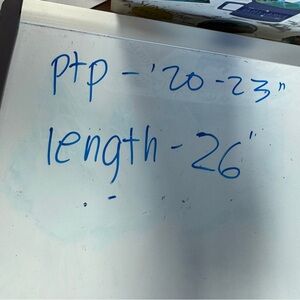 ptp - '20 - 23"
length - 26"